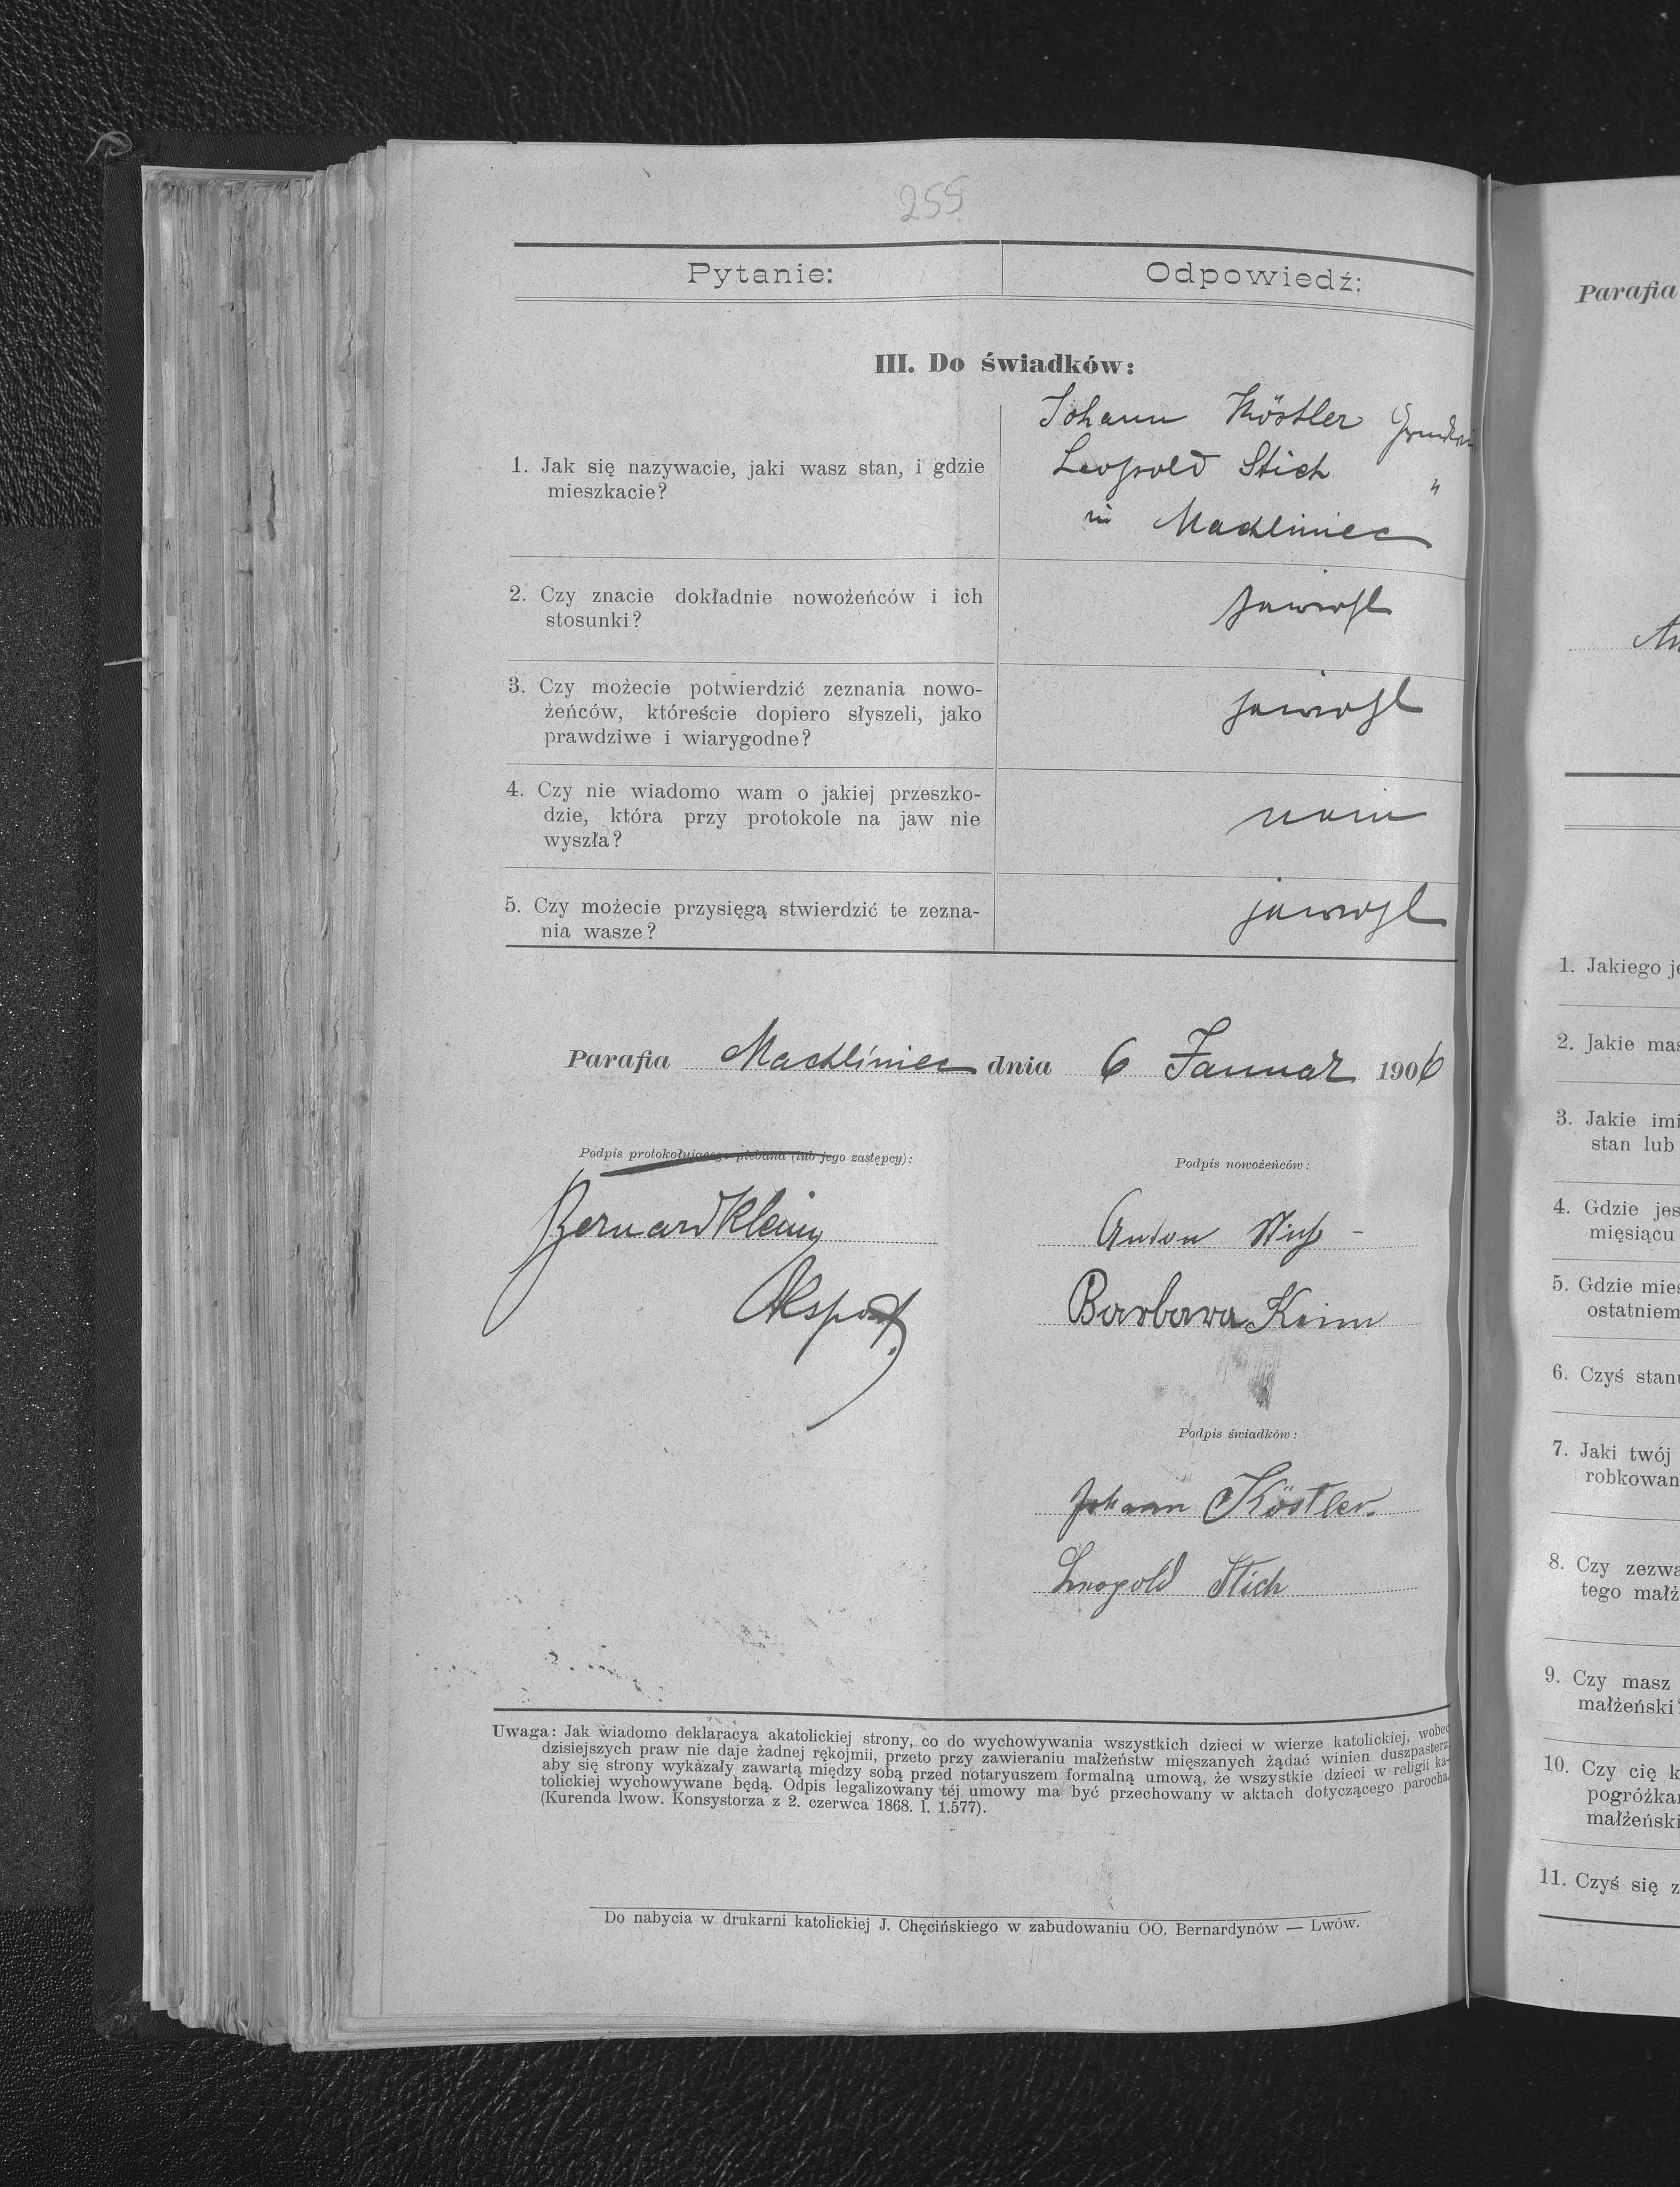 255
Pytanie:
Odpowiedź:
III. Do świadków:
1. Jak się nazywacie, jaki wasz stan, i gdzie
mieszkacie?
Johann Köstler
Leopold Stich "
in Machliniec
2. Czy znacie dokładnie nowożeńców i ich
stosunki?
jawohl
3. Czy możecie potwierdzić zeznania nowo-
żeńców, któreście dopiero słyszeli, jako
prawdziwe i wiarygodne?
jawohl
4. Czy nie wiadomo wam o jakiej przeszko-
dzie, która przy protokole na jaw nie
wyszła?
nein
5. Czy możecie przysięgą stwierdzić te zezna-
nia wasze?
jawohl
Parafia Machliniec dnia 6 Januar 1906
Podpis protokołującego plebana (lub jego zastępcy):
Bernard Klein
Ekspost.
Podpis nowożeńców:
Anton
Barbara Keim
Podpis świadków:
Johann Köstler.
Leopold Stich
Uwaga: Jak wiadomo deklaracya akatolickiej strony, co do wychowywania wszystkich dzieci w wierze katolickiej, wobec
dzisiejszych praw nie daje żadnej rękojmii, przeto przy zawieraniu małżeństw mięszanych żądać winien duszpasterz,
aby się strony wykazały zawartą między sobą przed notaryuszem formalną umową, że wszystkie dzieci w religii ka-
tolickiej wychowywane będą. Odpis legalizowany téj umowy ma być przechowany w aktach dotyczącego parocha.
(Kurenda lwow. Konsystorza z 2. czerwca 1868. l. 1.577).
Do nabycia w drukarni katolickiej J. Chęcińskiego w zabudowaniu OO. Bernardynów — Lwów.
Parafia
1. Jakiego
2. Jakie
3. Jakie
stan lub
4. Gdzie
miesiącu
5. Gdzie
ostatniem
6. Czyś
7. Jaki twój
8. Czy
tego
9. Czy masz
małżeński
10. Czy cię
11. Czyś się